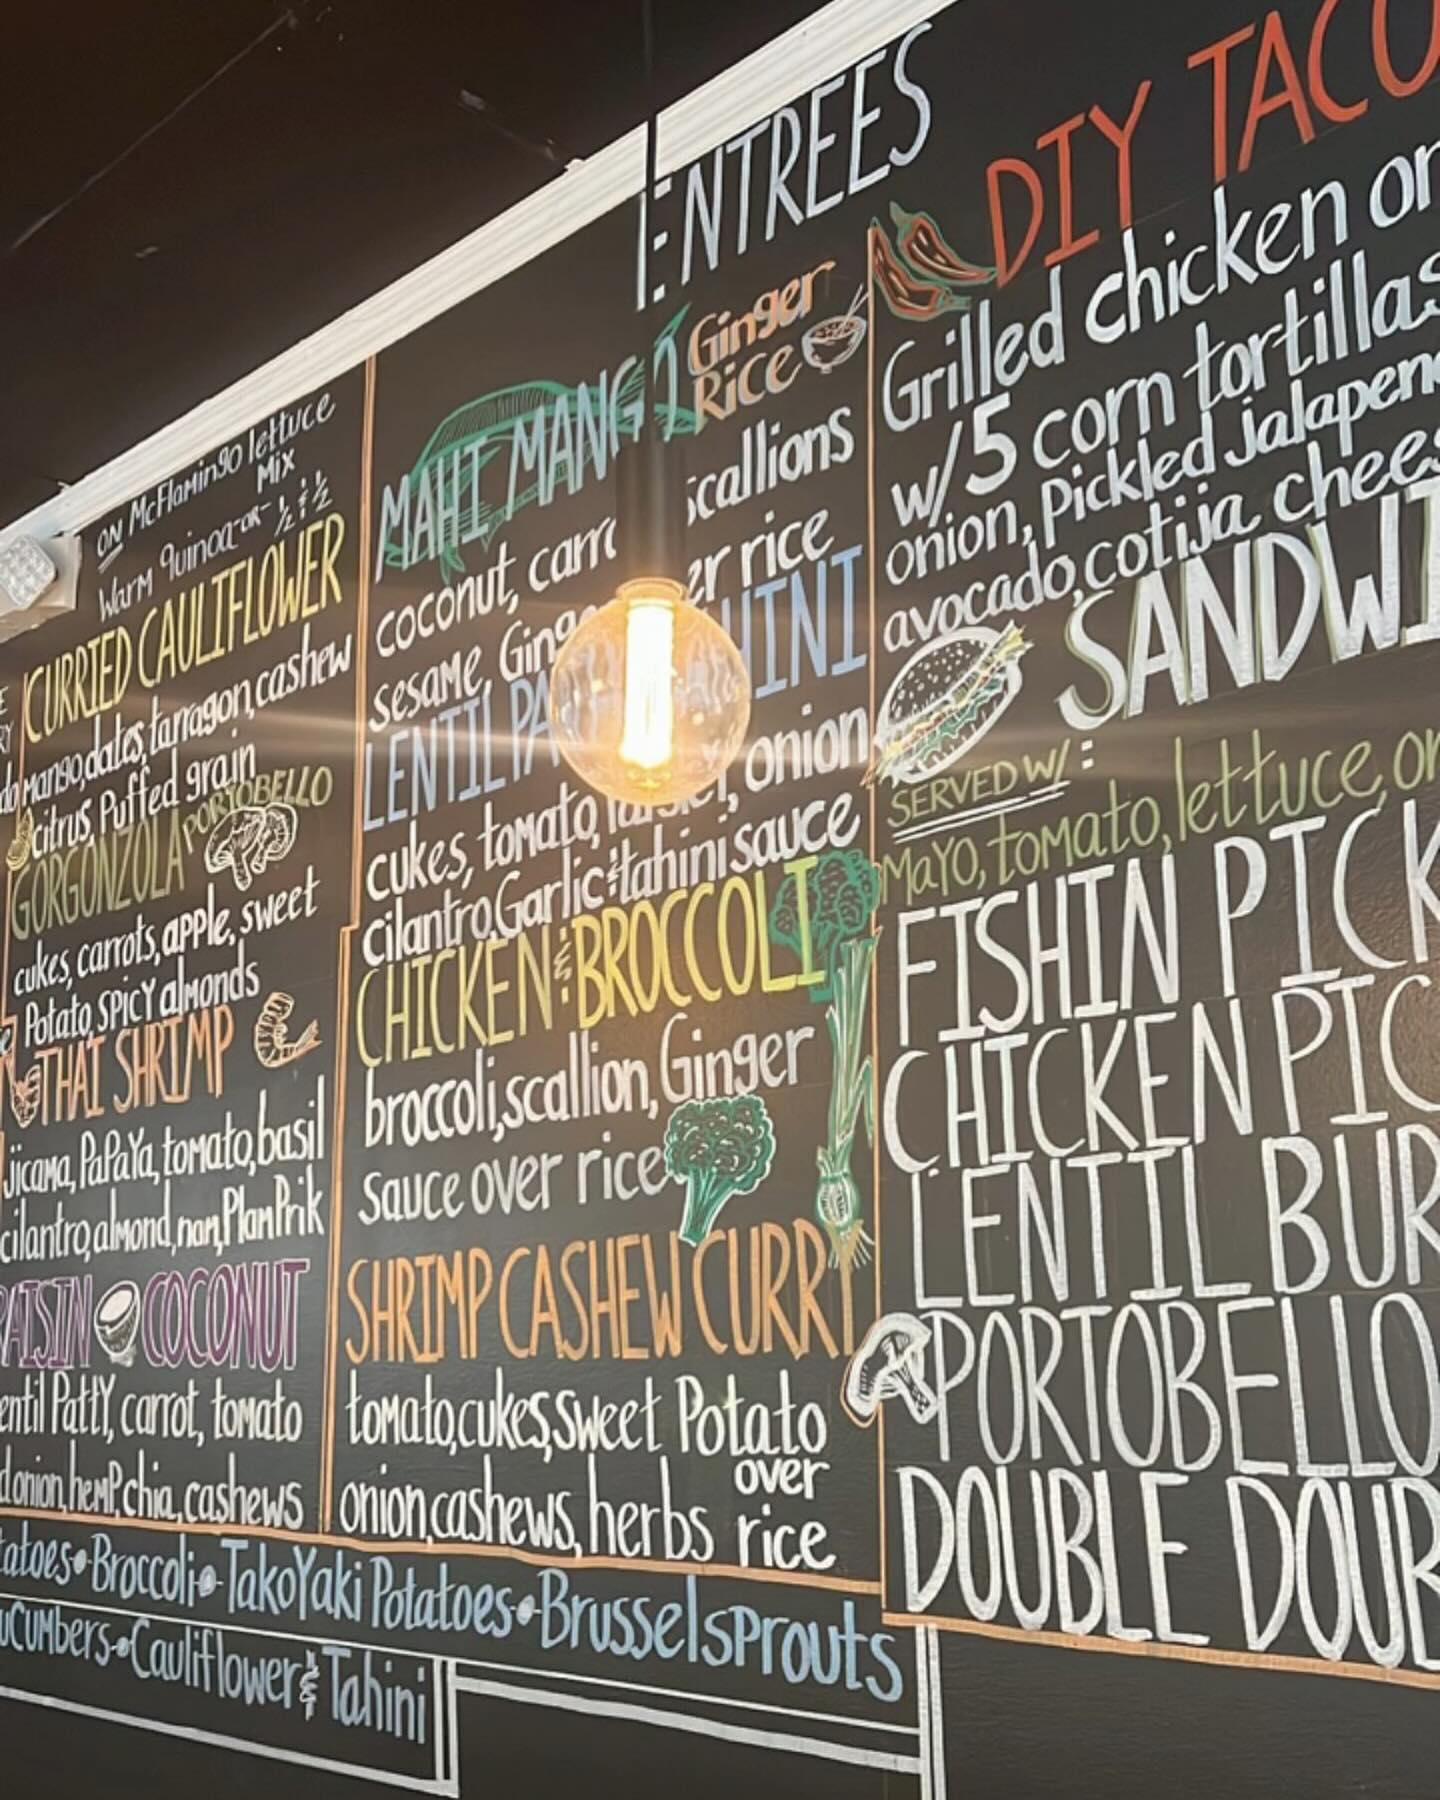 ON McFlamingo lettuce
Mix
Warm quinoa -OR- ½ & ½
CURRIED CAULIFLOWER
mango, dates, tarragon, cashew
citrus, Puffed grain
GORGONZOLA PORTOBELLO
cukes, carrots, apple, sweet
Potato, SPICY almonds
THAI SHRIMP
jicama, PaPaYa, tomato, basil
cilantro, almond, nam Plam Prik
RAISIN COCONUT
lentil PattY, carrot, tomato
onion, hemp, chia, cashews
ENTREES
MAHI MANGO Ginger
Rice
coconut, scallions
sesame, rice
LENTIL
cukes, tomato, onion
cilantro, Garlic & tahini sauce
CHICKEN & BROCCOLI
broccoli, scallion, Ginger
sauce over rice
SHRIMP CASHEW CURRY
tomato, cukes, sweet Potato
onion, cashews, herbs over
rice
DIY TACO
Grilled chicken or
w/ 5 corn tortillas
onion, pickled jalapen
avocado, cotija chees
SANDWI
SERVED W/:
MaYO, tomato, lettuce, on
FISHIN PICK
CHICKEN PIC
LENTIL BUR
PORTOBELLO
DOUBLE DOUB
tatoes • Broccoli • TakoYaki Potatoes • Brusselsprouts
uCUMbers • Cauliflower & Tahini